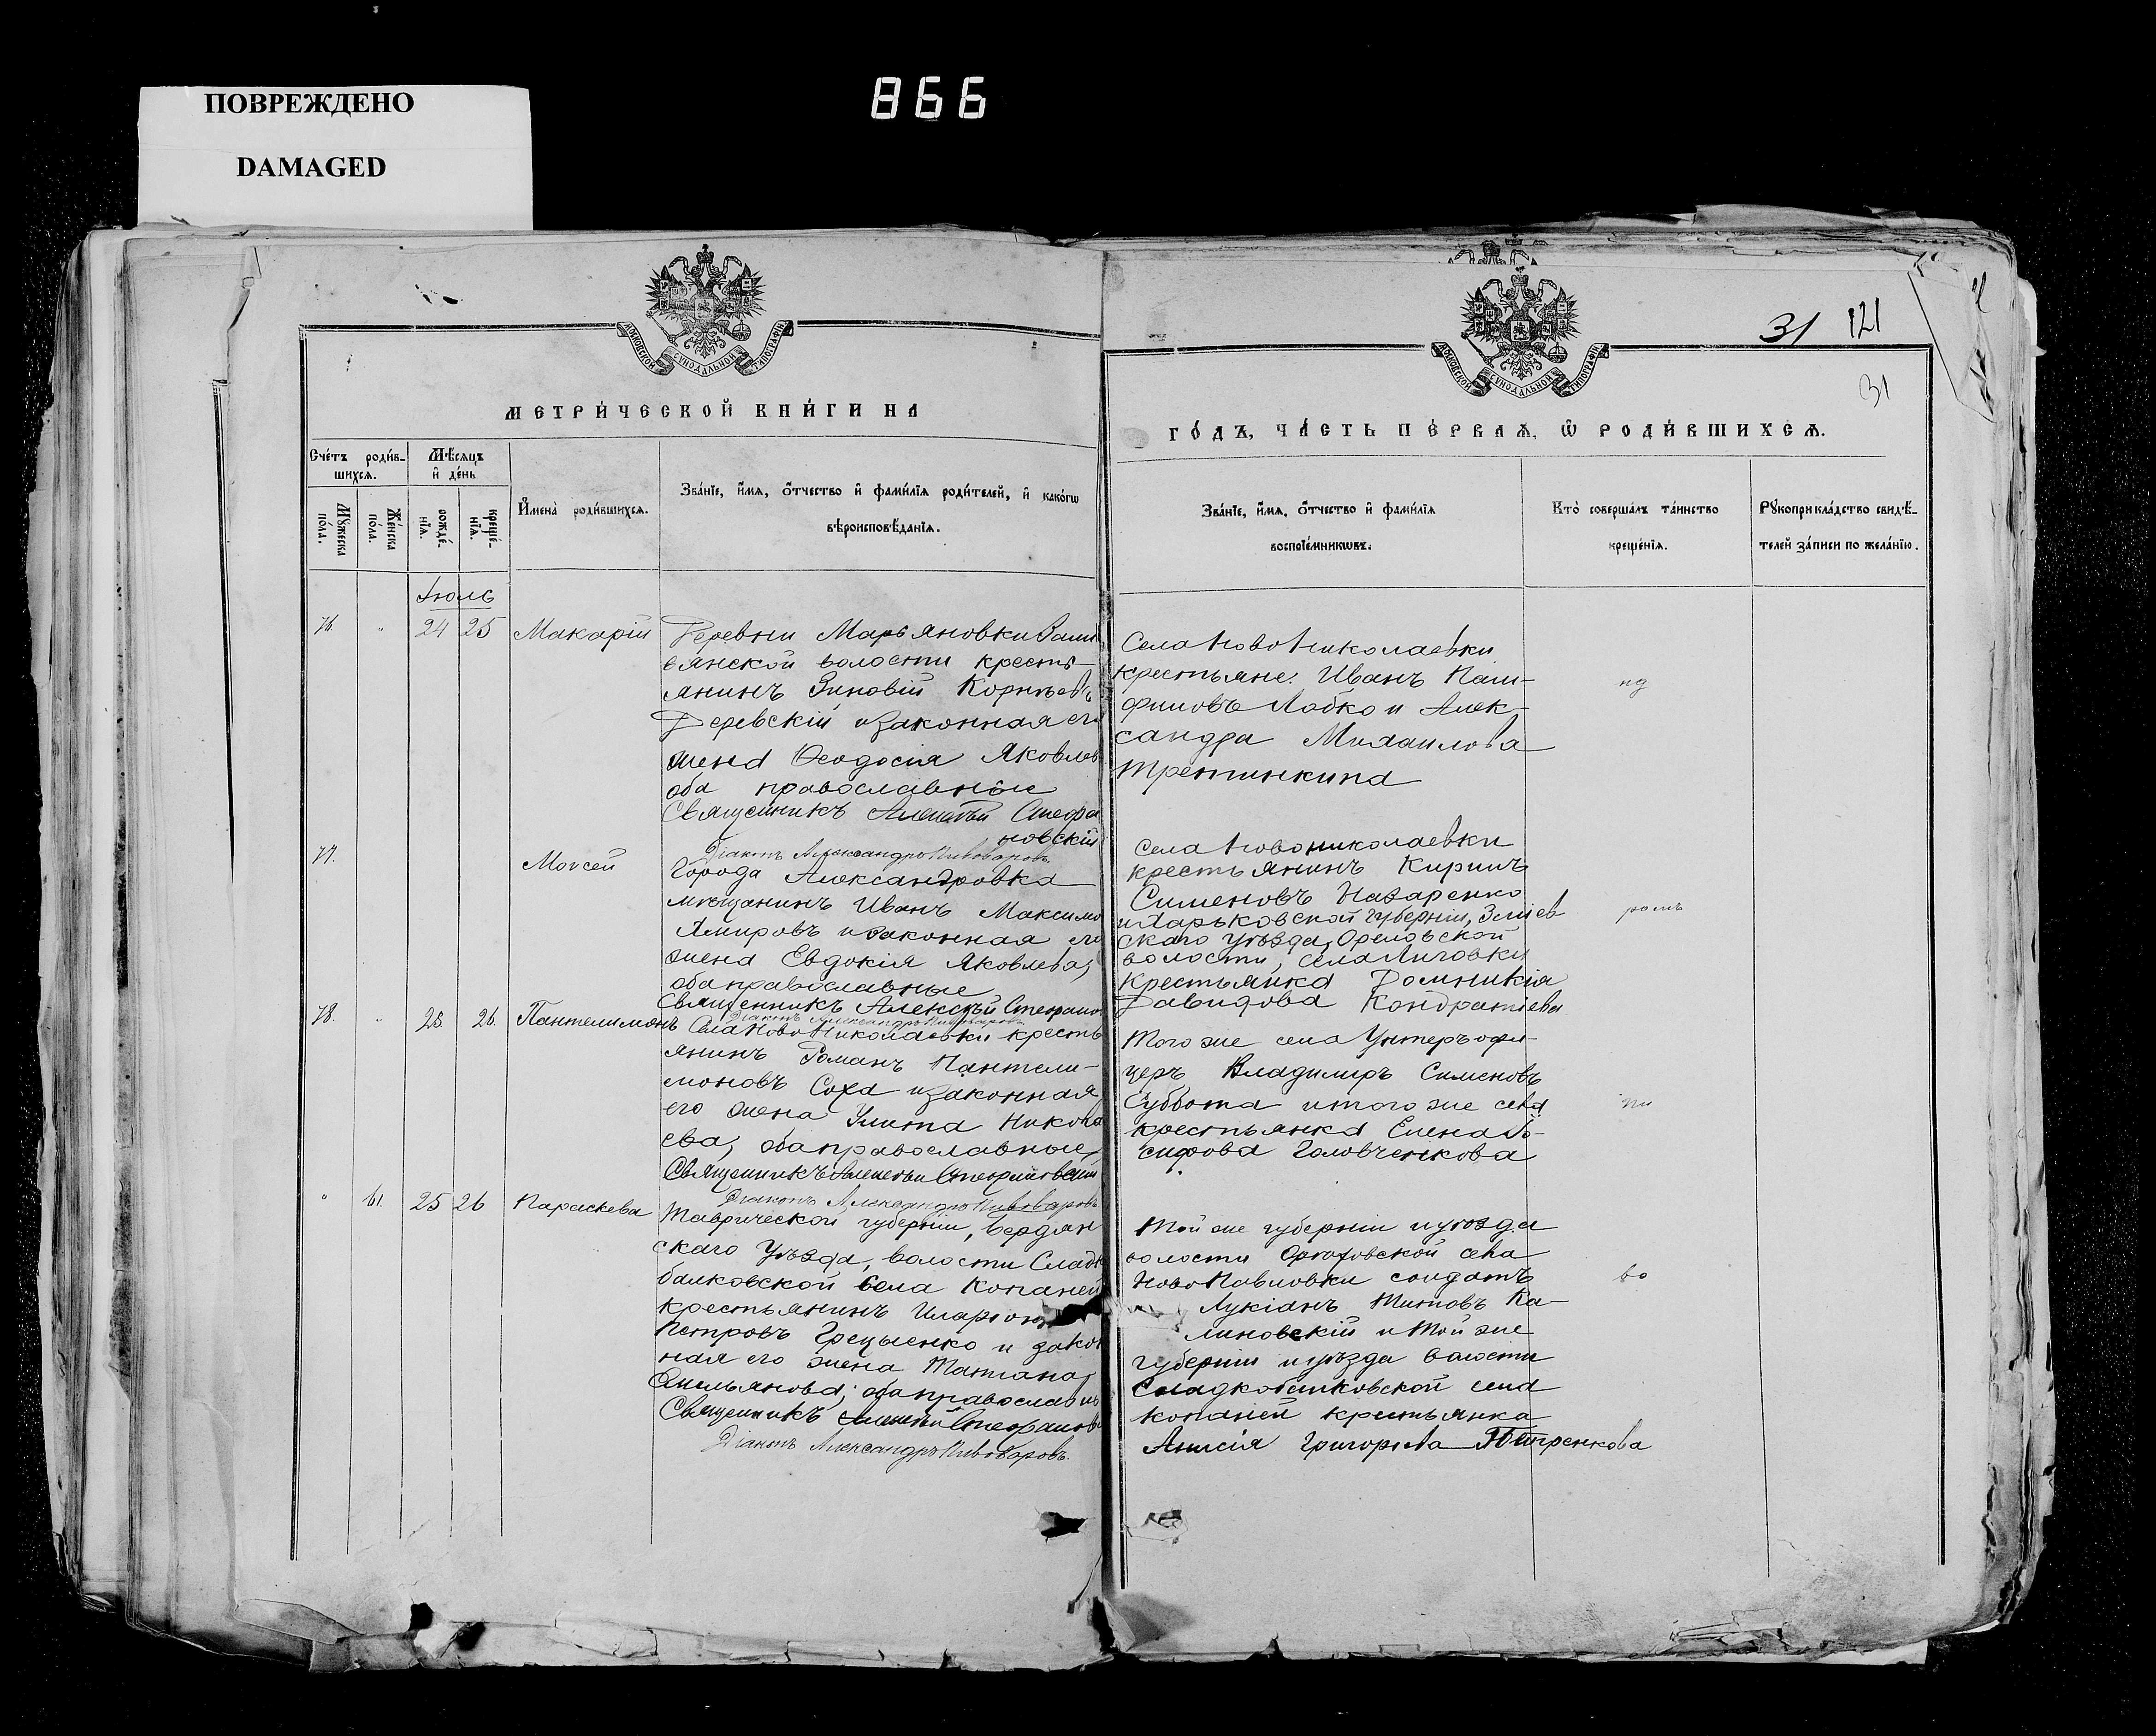 ПОВРЕЖДЕНО
DAMAGED
866
МОСКОВСКОЙ СѴНОДАЛЬНОЙ ТИПОГРАФІИ
МЕТРИ́ЧЕСКОЙ КНИ́ГИ НА
Сче́тъ роди́в-
шихсѧ.
Мѣ́сѧцъ
и҆ де́нь
Мꙋ́жеска по́ла.
Же́нска по́ла.
рожде́-
нїѧ.
креще́-
нїѧ.
И҆мена̀ роди́вшихсѧ.
Зва́нїе, и҆́мѧ, ѻ҆́тчество и҆ фами́лїѧ роди́телей, и҆ како́гѡ
вѣроисповѣ́данїѧ.
Іюль
76. " 24 25 Макарій
Деревни Марьяновки
вянской волости кресть-
янинъ Зиновій Корнѣевъ
Деревскій и законная его
жена Ѳеодосія Яковлев
оба православные
Священникъ Алексѣй Стефа
новскій
Діаконъ Александръ Пивоваровъ
77. Моисей
Города Александровка
мѣщанинъ Иванъ Максимо
и законная его
жена Евдокія Яковлева,
оба православные
Священникъ Алексѣй Стефанов
Діаконъ Александръ Пивоваровъ
78. " 25. 26. Пантелимонъ
Села Ново Николаевки кресть
янинъ Романъ Пантели-
моновъ Соха и законная
его жена Улита Никола
ева, оба православные,
Священникъ Алексѣй Стефановскій
Діаконъ Александръ Пивоваровъ
" 61. 25 26 Параскева
Таврической губерніи, Бердян
скаго Уѣзда, волости Сладк
балковской Села Копаней
крестьянинъ Иларіон
Петровъ Грецыенко и закон
ная его жена Татіана
Омельянова; оба православн
Священникъ Алексѣй Стефанов
Діаконъ Александръ Пивоваровъ.
МОСКОВСКОЙ СѴНОДАЛЬНОЙ ТИПОГРАФІИ
31 121
31
ГО́ДЪ, ЧА́СТЬ ПЕ́РВАѦ, Ѡ҆ РОДИ́ВШИХСѦ.
Зва́нїе, и҆́мѧ, ѻ҆́тчество и҆ фами́лїѧ
воспрїе́мникѡвъ.
Кто̀ соверша́лъ та́инство
креще́нїѧ.
Рꙋкоприкла́дство свидѣ́-
телей за́писи по жела́нїю.
Села Ново Николаевки
крестьяне: Иванъ Пам-
филовъ Лобко и Алек-
сандра Михаилова
Третинкина
Села Новониколаевки
крестьянинъ Кирилъ
Сименовъ Назаренко
и Харьковской Губерніи, Зміев
скаго Уѣзда, Орельской
волости, села Лиговки
крестьянка Домникія
Давидова Кондратіева
Того же села Унтеръ офи-
церъ Владимиръ Сименовъ
Суббота и того же села
крестьянка Елена Іо-
сифова Головченкова
Той же губерніи и уѣзда
волости Орѣховской села
Ново Павловки солдатъ
Лукіанъ Титовъ Ка-
линовскій и той же
губерніи и уѣзда волости
Сладкобалковской села
Копаней крестьянка
Анисія Григорьева Петренкова